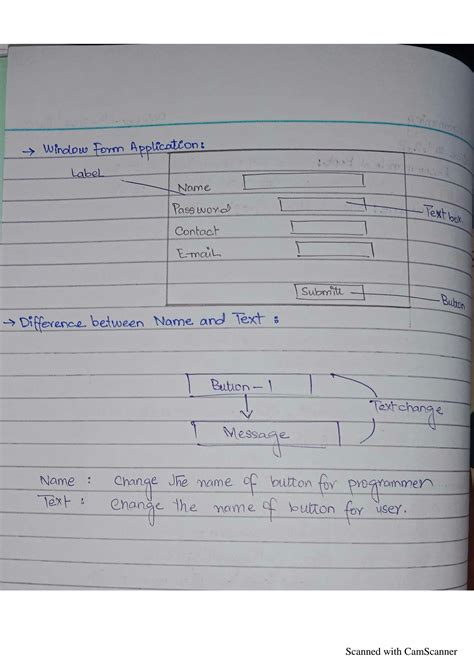 → Window Form Application:
Label
Name
Password
Text box
Contact
E-mail
Submit
Button
→ Difference between Name and Text :
Button-1
Text change
Message
Name : Change the name of button for programmer
Text : Change the name of button for user.
Scanned with CamScanner